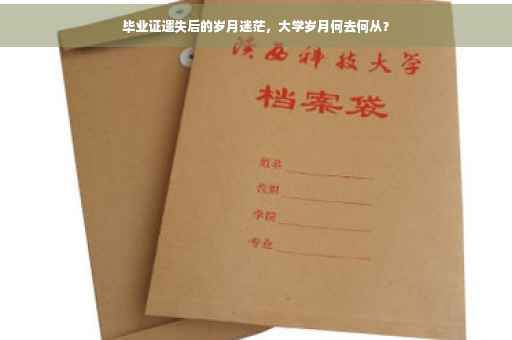 毕业证遗失后的岁月迷茫，大学岁月何去何从？
陕西科技大学
档案袋
姓名
学院
专业